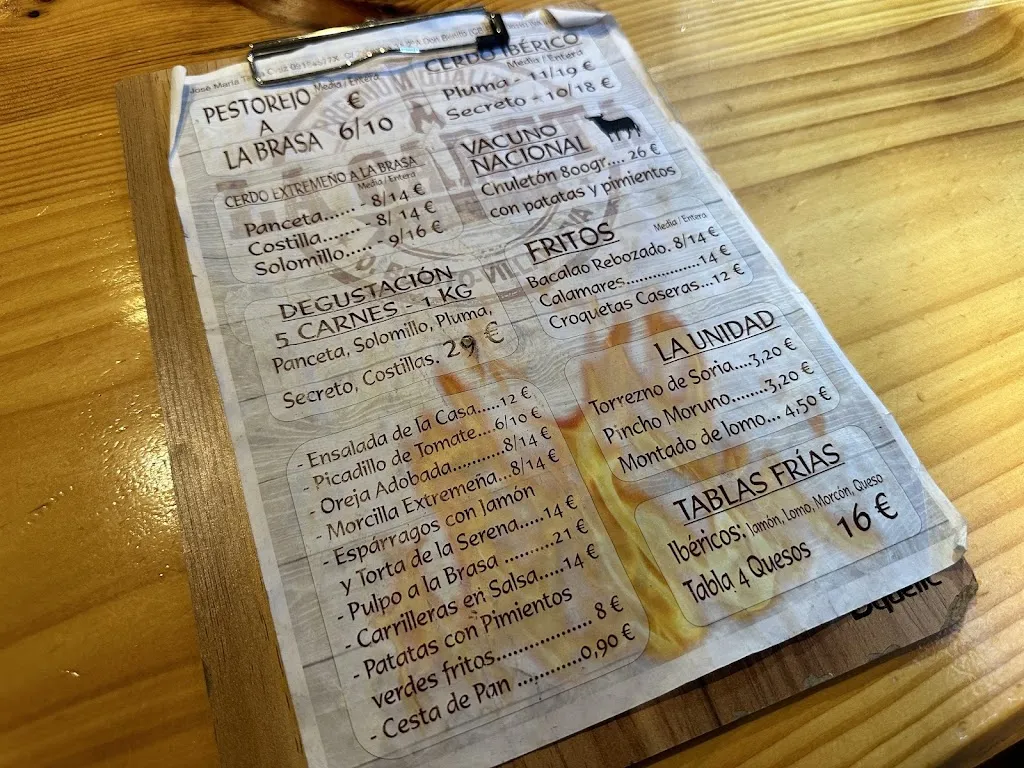 PESTOREJO
A
LA BRASA
Media / Entera
€
6/10
CERDO EXTREMEÑO A LA BRASA
Media / Entera
Panceta....... - 8/14 €
Costilla....... - 8/ 14 €
Solomillo..... - 9/16 €
DEGUSTACIÓN
5 CARNES - 1 KG
Panceta, Solomillo, Pluma,
Secreto, Costillas. 29 €
- Ensalada de la Casa.....12 €
- Picadillo de Tomate...6/10 €
- Oreja Adobada..........8/14 €
- Morcilla Extremeña...8/14 €
- Espárragos con Jamón
y Torta de la Serena.....14 €
- Pulpo a la Brasa ..........21 €
- Carrilleras en Salsa.....14 €
- Patatas con Pimientos
verdes fritos................... 8 €
- Cesta de Pan ............0,90 €
CERDO IBÉRICO
Media / Entera
Pluma - 11/19 €
Secreto - 10/18 €
VACUNO
NACIONAL
Chuletón 800gr.... 26 €
con patatas y pimientos
FRITOS
Media / Entera
Bacalao Rebozado. 8/14 €
Calamares.................14 €
Croquetas Caseras...12 €
LA UNIDAD
Torrezno de Soria....3,20 €
Pincho Moruno........3,20 €
Montado de lomo... 4,50 €
TABLAS FRÍAS
Ibéricos: Jamón, Lomo, Morcón, Queso
Tabla 4 Quesos 16 €